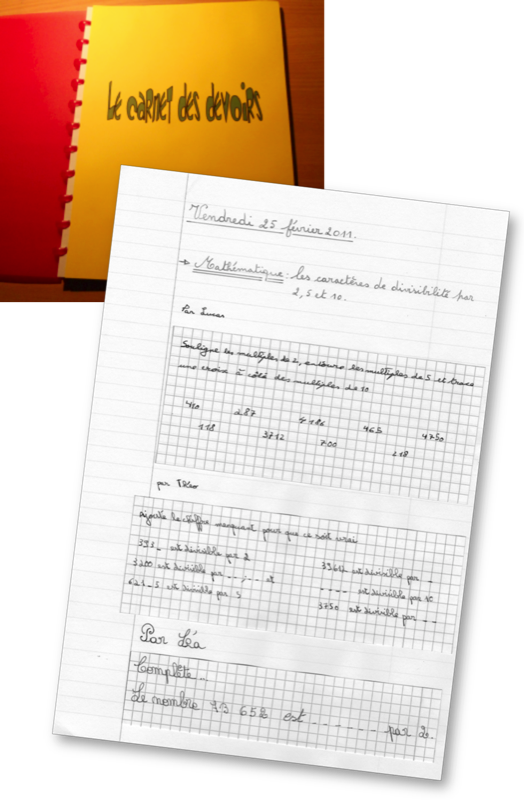 Le carnet des devoirs
Vendredi 25 février 2011.
→ Mathématique : les caractères de divisibilité par
2, 5 et 10.
Par Lucas
Souligne les multiples de 2, entoure les multiples de 5 et trace
une croix à côté des multiples de 10
410 287 4186 465 4750
118 3712 700 218
par Théo
Ajoute le chiffre manquant pour que ce soit vrai
395_ est divisible par 2
3200 est divisible par _ _ , _ _ et
621_5 est divisible par 5
est divisible par _
_ _ _ _ est divisible par 10
3750 est divisible par _ _
Par Léa
Complète...
Le nombre 73 658 est _ _ _ _ _ _ _ par 2.